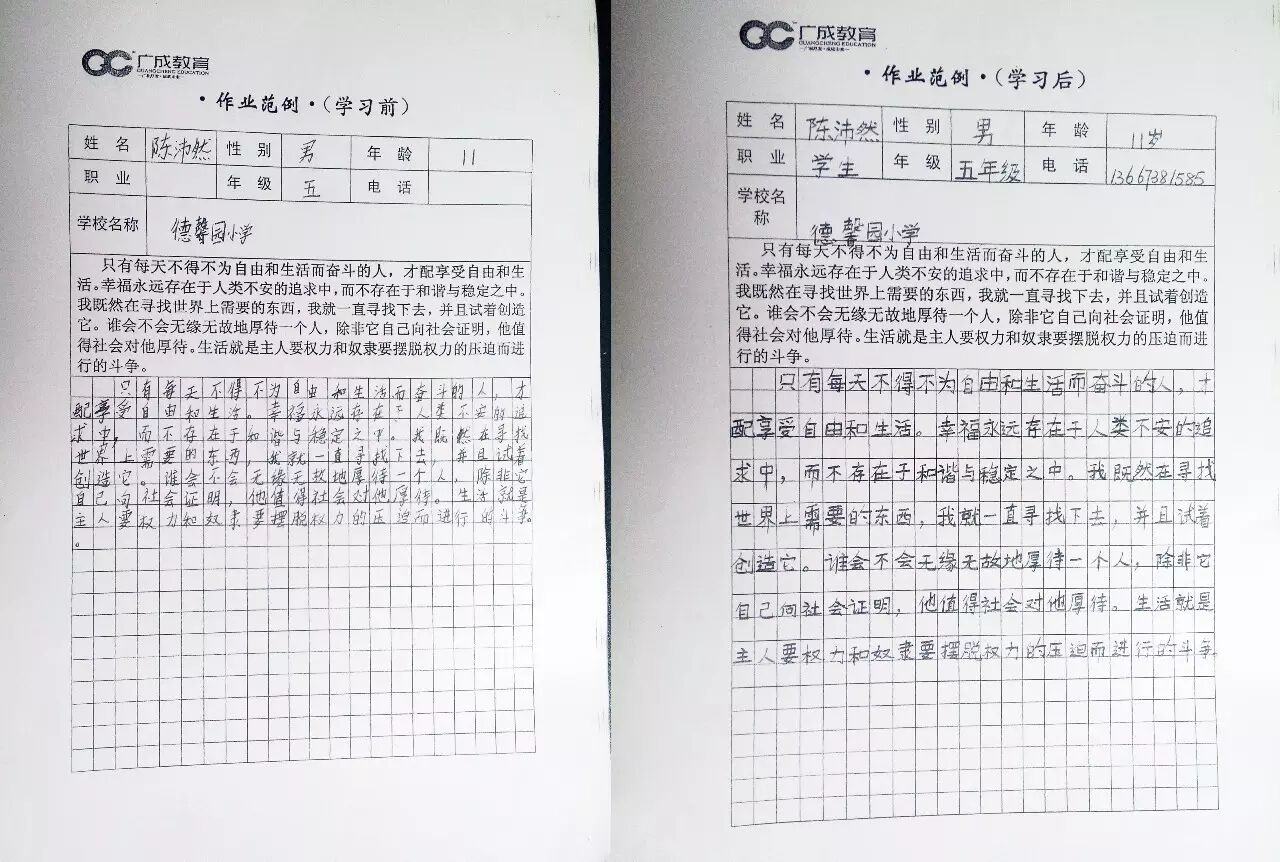 广成教育
GUANGCHENG EDUCATION
·作业范例·（学习前）
姓 名 陈沛然 性 别 男 年 龄 11
职 业 年 级 五 电 话
学校名称 德馨园小学
只有每天不得不为自由和生活而奋斗的人，才配享受自由和生
活。幸福永远存在于人类不安的追求中，而不存在于和谐与稳定之中。
我既然在寻找世界上需要的东西，我就一直寻找下去，并且试着创造
它。谁会不会无缘无故地厚待一个人，除非它自己向社会证明，他值
得社会对他厚待。生活就是主人要权力和奴隶要摆脱权力的压迫而进
行的斗争。
只有每天不得不为自由和生活而奋斗的人，才
配享受自由和生活。幸福永远存在于人类不安的追
求中，而不存在于和谐与稳定之中。我既然在寻找
世界上需要的东西，我就一直寻找下去，并且试着
创造它。谁会不会无缘无故地厚待一个人，除非它
自己向社会证明，他值得社会对他厚待。生活就是
主人要权力和奴隶要摆脱权力的压迫而进行的斗争
。
广成教育
GUANGCHENG EDUCATION
·作业范例·（学习后）
姓 名 陈沛然 性 别 男 年 龄 11岁
职 业 学生 年 级 五年级 电 话 13667381585
学校名
称 德馨园小学
只有每天不得不为自由和生活而奋斗的人，才配享受自由和生
活。幸福永远存在于人类不安的追求中，而不存在于和谐与稳定之中。
我既然在寻找世界上需要的东西，我就一直寻找下去，并且试着创造
它。谁会不会无缘无故地厚待一个人，除非它自己向社会证明，他值
得社会对他厚待。生活就是主人要权力和奴隶要摆脱权力的压迫而进
行的斗争。
只有每天不得不为自由和生活而奋斗的人，才
配享受自由和生活。幸福永远存在于人类不安的追
求中，而不存在于和谐与稳定之中。我既然在寻找
世界上需要的东西，我就一直寻找下去，并且试着
创造它。谁会不会无缘无故地厚待一个人，除非它
自己向社会证明，他值得社会对他厚待。生活就是
主人要权力和奴隶要摆脱权力的压迫而进行的斗争